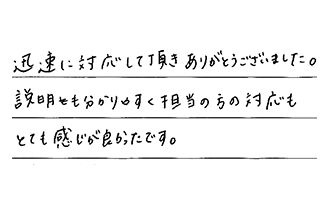 迅速に対応して頂きありがとうございました。
説明せも分かりやすく担当の方の対応も
とても感じが良かったです。